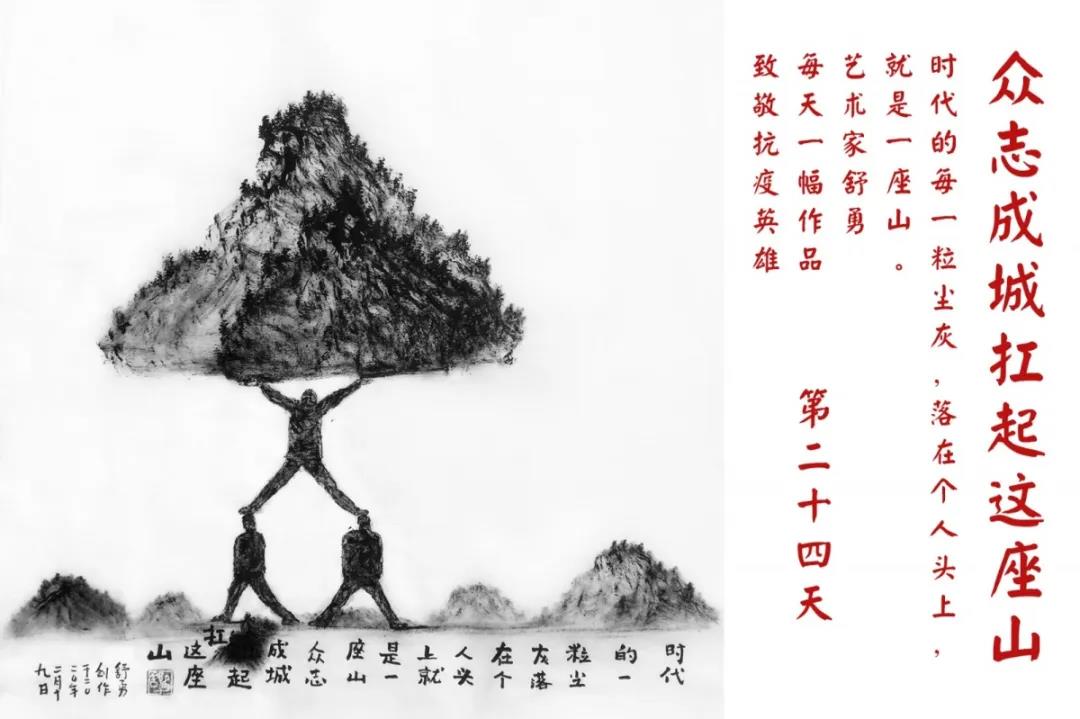 众志成城扛起这座山
时代的每一粒尘灰，落在个人头上，
就是一座山。
艺术家舒勇
每天一幅作品
致敬抗疫英雄
第二十四天
时代
的一
粒尘
灰落
在个
人头
上就
是一
座山
众志
成城
扛起
这座
山
舒勇
创作
于二〇
二〇年
二月十
九日